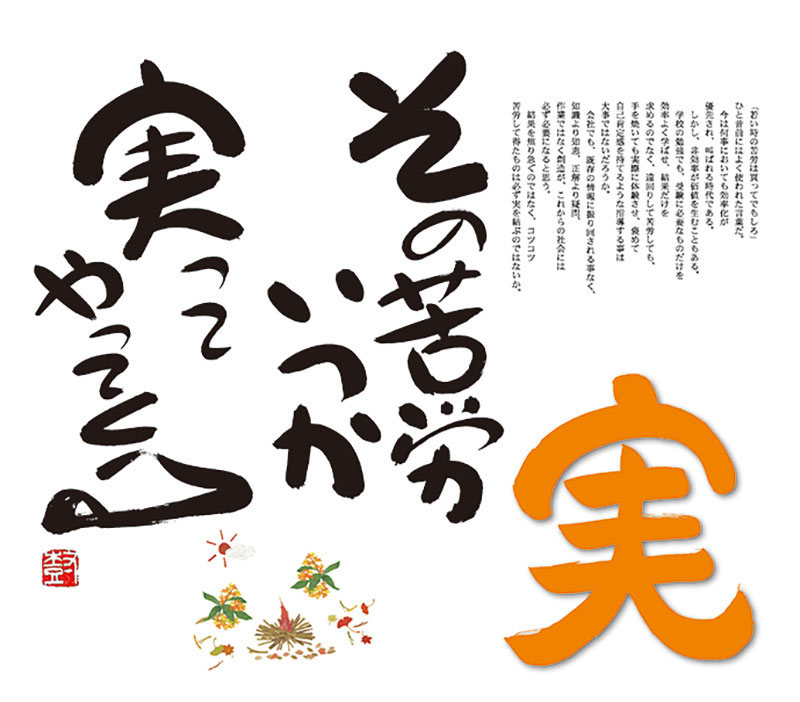 「若い時の苦労は買ってでもしろ」
ひと昔前にはよく使われた言葉だ。
今は何事においても効率化が
優先され、叫ばれる時代である。
しかし、非効率が価値を生むこともある。
学校の勉強でも、受験に必要なものだけを
効率よく学ばせ、結果だけを
求めるのでなく、遠回りして苦労しても、
手を焼いても実際に体験させ、褒めて
自己肯定感を持てるような指導する事は
大事ではないだろうか。
会社でも、既存の情報に振り回される事なく、
知識より知恵、正解より疑問、
作業ではなく創造が、これからの社会には
必ず必要になると思う。
結果を焦り急ぐのではなく、コツコツ
苦労して得たものは必ず実を結ぶのではないか。
実
その苦労
いつか
実って
やってくる